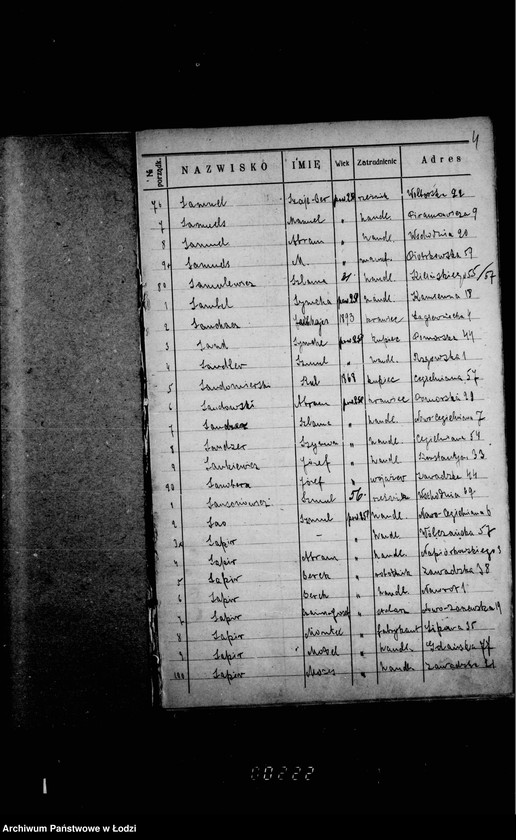 4
№ porządk. NAZWISKO IMIĘ Wiek Zatrudnienie Adres
76 Samuel Szaja-Ber pow 25 rzeźnik Wolborska 22
7 Samuels Manuel " handl. Piramowicza 9
8 Samuel Abram " handl. Wschodnia 20
9 Samuels M. " Piotrkowska 59
80 Samulewicz Szlama 21 handl. Kilińskiego 55/57
1 Symcha pow 25 handl. Kamienna 18
2 1893 krawiec Łagiewnicka
3 Symcha pow 25 kupiec Pomorska 44
4 Szmul " handl. Rzgowska 1
5 Sandomierski 1868 kupiec Cegielniana 57
6 Sandowski Abram pow 25 krawiec Pomorska
7 Szlama " handl. Nowo Cegielniana 7
8 Sandzer " handl. Cegielniana 54
9 Sankiewicz Józef " handl. Konstant. 33
90 Józef " wojażer Zawadzka 44
1 Szmul 56 rzeźnik Wschodnia 19
2 Sas Szmul pow 25 handl. Nowo-Cegielniana 6
Sapir - " handl. Wólczańska 57
4 Sapir Abram " handl. Napiórkowskiego
5 Sapir Berek " robotnik Zawadzka 38
6 Sapir Berek " handl. Nawrot 1
7 Sapir " stolarz Nowo-Zarzewska 19
8 Sapir Montel " fabrykant Lipowa 35
9 Sapir " handl. Gdańska 77
100 Sapir Mozes " handl. Zawadzka 21
00222
Archiwum Państwowe w Łodzi